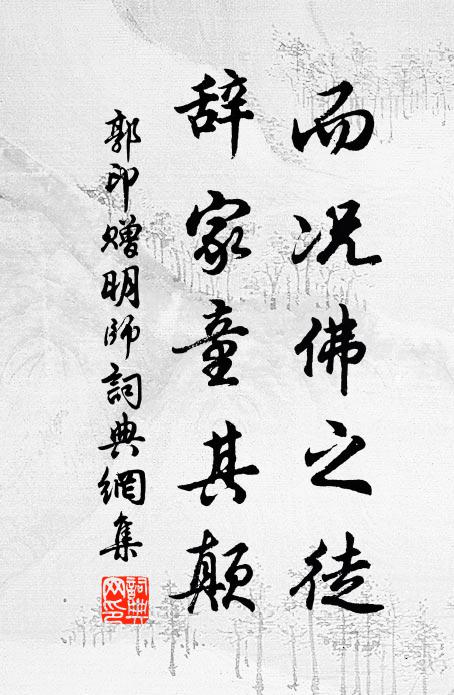 而况佛之徒
辞家童其颠
郭印赠明师詞典網集
詞典網印